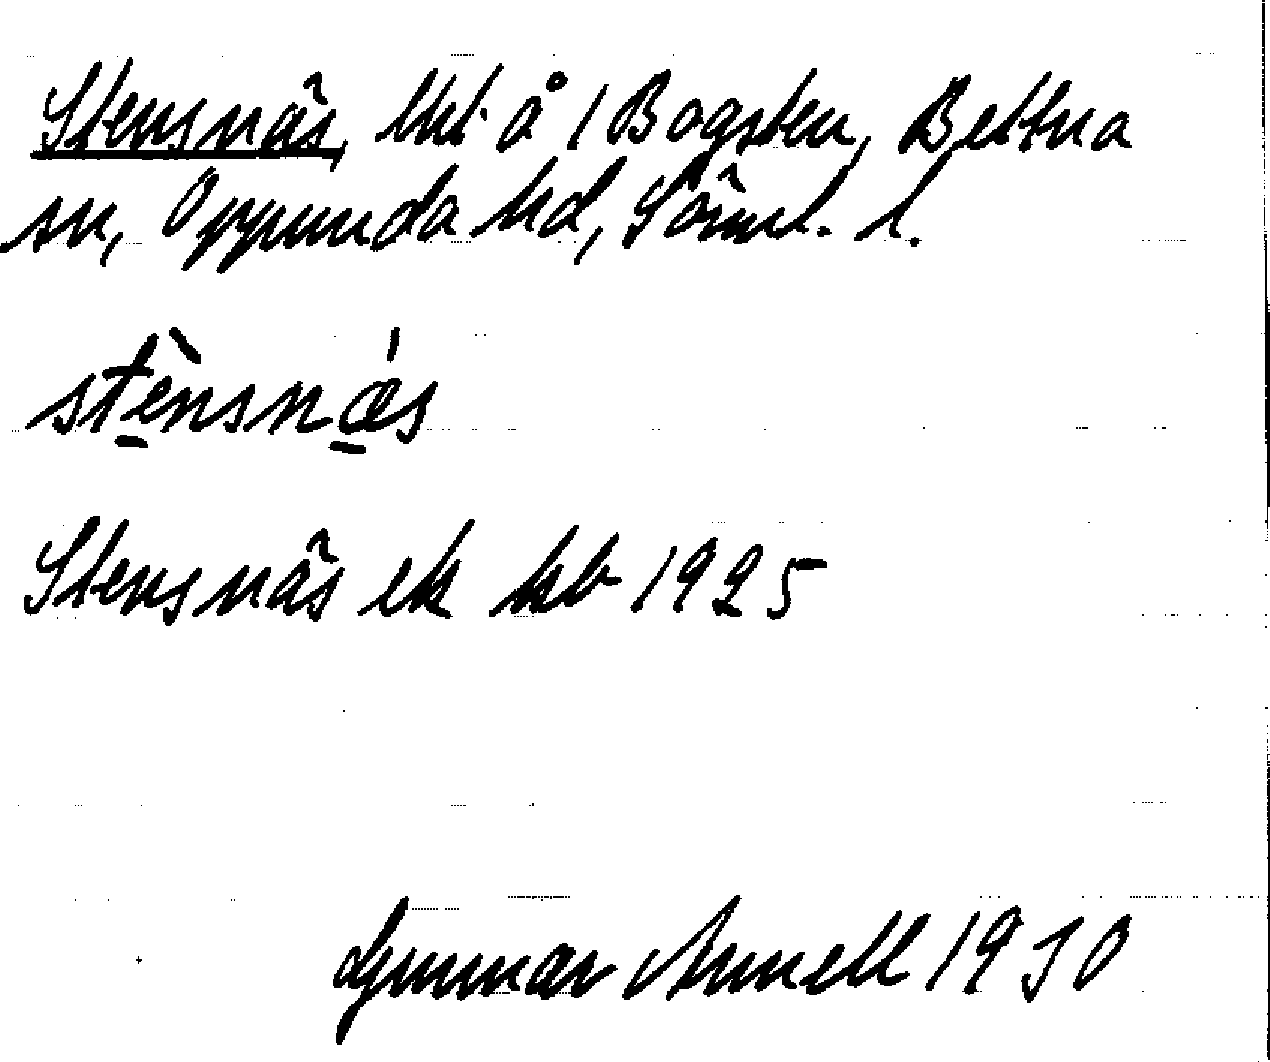 Stensnäs, lht å 1 Bogsten, Bettna
sn, Oppunda hd, Söml. l.
stènsnǽs
Stensnäs ek kb 1925
Gunnar Annell 1930